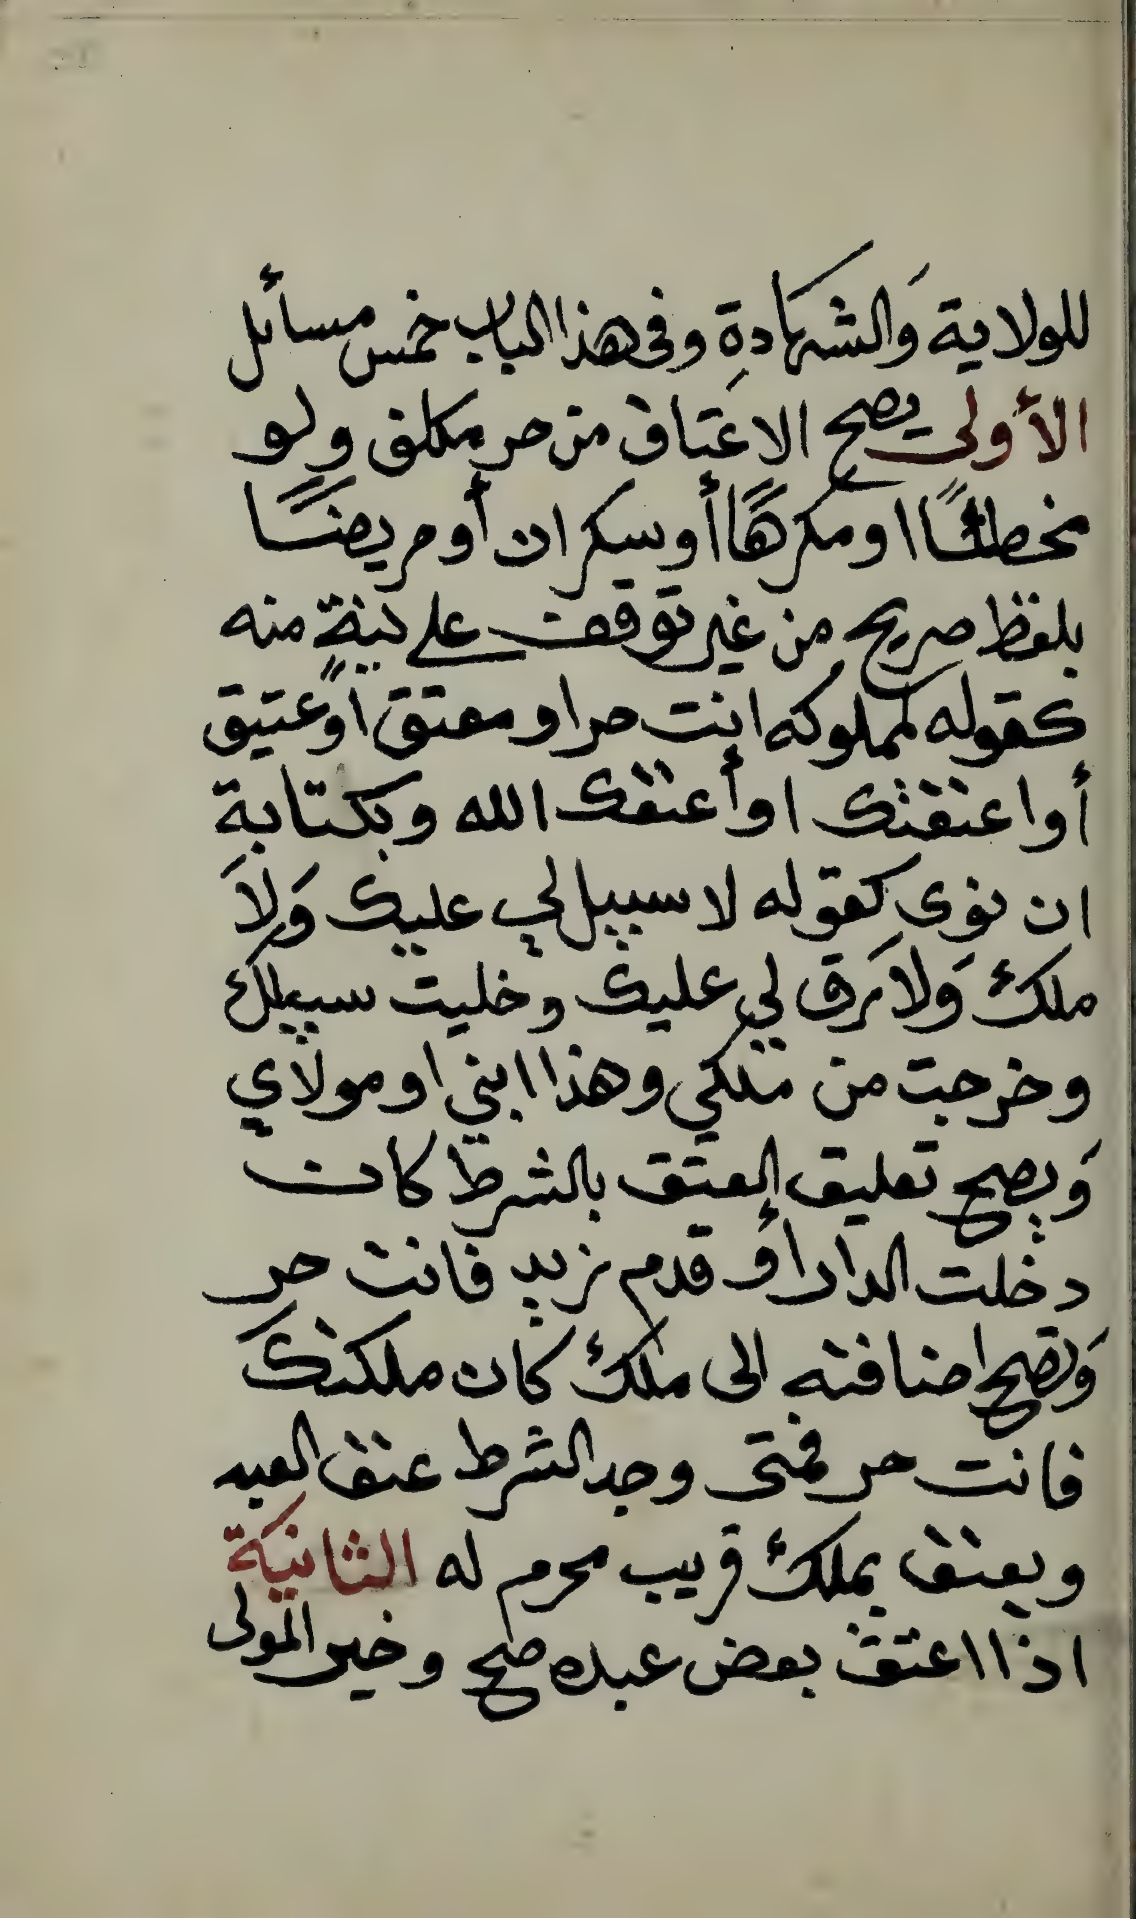 للولاية وَالشهادةِ وفى هذا الباب خمس مسائل
الأولى يصح الاعتاق من حر مكلف ولو
مخطئًا او مكرهًا أو سكران أو مريضًا
بلفظ صريح من غير توقف على نيةٍ منه
كقوله لمملوكه انت حر او معتق اوعتيق
أو اعتقتك او أعتقك الله وبكتابة
ان نوى كقوله لا سبيل لي عليك وَلاَ
ملك وَلا رق لي عليك وخليت سبيلك
وخرجت من ملكي وهذا ابني او مولاي
وَيصح تعليق العتق بالشرط كان
دخلت الدار أو قدم زيد فانت حر
وَتصح اضافته الى ملك كان ملكتك
فانت حر فمتى وجد الشرط عتق العبد
ويعتق بملك قريب محرم له الثانيَة
اذا اعتق بعض عبده صح وخير المولى